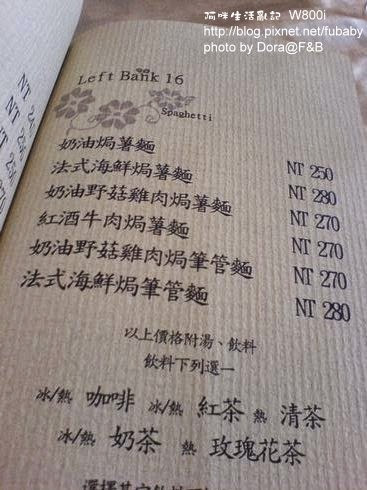 阿咪生活亂記 W800i
http://blog.pixnet.net/fubaby
photo by Dora@F&B
Left Bank 16
Spaghetti
奶油焗薯麵 NT 250
法式海鮮焗薯麵 NT 280
奶油野菇雞肉焗薯麵 NT 270
紅酒牛肉焗薯麵 NT 270
奶油野菇雞肉焗筆管麵 NT 270
法式海鮮焗筆管麵 NT 280
以上價格附湯、飲料
飲料下列選一
冰/熱 咖啡 冰/熱 紅茶 熱 清茶
冰/熱 奶茶 熱 玫瑰花茶